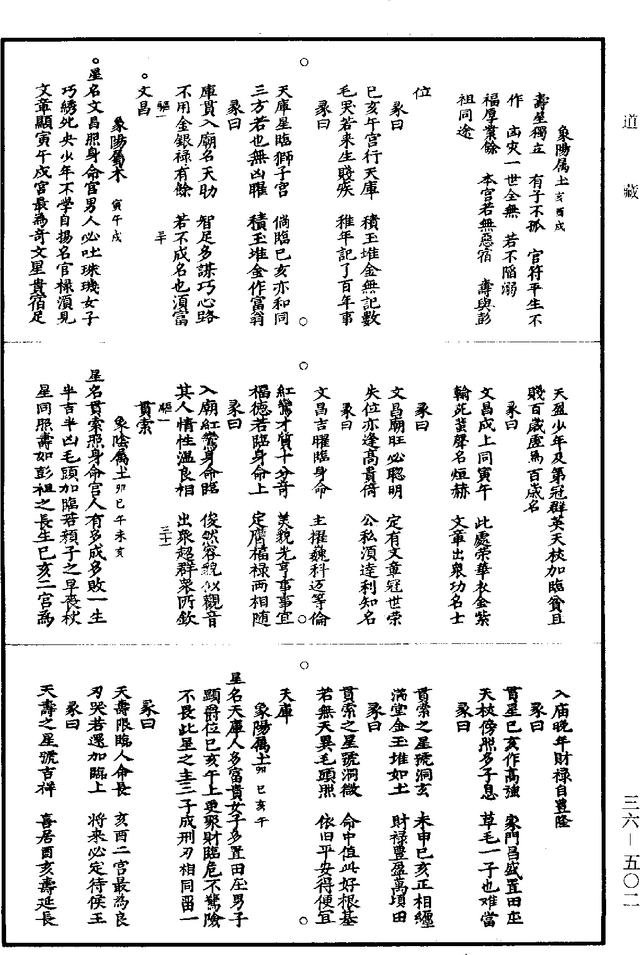 道藏
象陽属土 亥酉戌
壽星獨立 有子不孤 官符平生不
作 凶灾一世全無 若不陷溺
福厚業餘 本宮若無惡宿 壽與彭
祖同途
位
彖曰
巳亥午宮行天庫 積玉堆金無記數
毛哭若来生賤疾 稚年記了百年事
彖曰
天庫星臨獅子宮 倘臨巳亥亦和同
三方若也無凶曜 積玉堆金作富翁
彖曰
庫貫入廟名天助 智足多謀巧心路
不用金銀禄有餘 若不成名也湏富
。文昌
象陽屬木 寅午戌
。星名文昌照身命官男人必吐珠璣女子
巧綉死央少年不學自揚名官祿湏見
文章顯寅午戌宮最為奇文星貴宿足
天盈少年及第冠群英天杖加臨貧且
賤百歲虛為百歲名
彖曰
文昌戌上同寅午 此處荣華衣金紫
翰苑蜚聲名烜赫 文章出衆功名士
彖曰
文昌廟旺必聰明 定有文章冠世荣
失位亦逢高貴倚 公私湏達利知名
彖曰
文昌吉曜臨身命 主擢巍科迈等倫
紅鸞才質十分奇 美貌先亨事事宜
福德若臨身命上 定膺福禄两相随
彖曰
入廟紅鸞身命臨 俊然容貌似觀音
其人情性溫良相 出衆超群衆所欽
貫索
象陰属土 卯巳午未亥
星名貫索照身命宫人有多成多敗一生
半吉半凶毛頭加臨若顏子之早喪杖
星同照壽如彭祖之長生巳亥二宫為
入庙晚年財禄自豊隆
彖曰
貫星巳亥作高強 家門昌盛置田庄
天杖傍照多子息 草毛一子也难當
彖曰
貫索之星號洞玄 未申巳亥正相纏
滿堂金玉堆如土 財禄豐盈萬頃田
彖曰
貫索之星號洞微 命中值此好根基
若無天異毛頭照 依旧平安得便冝
天庫
象陽属土 卯巳亥午
星名天庫人多富貴女子多置田庄男子
顕爵位巳亥午上更聚財臨危不驚險
不長此星之主三子成刑刃相同留一
天壽限臨人命長 亥酉二宫最為良
刃哭若還加臨上 将来必定待侯王
彖曰
天壽之星號吉祥 喜居酉亥壽延長
三六—五〇二